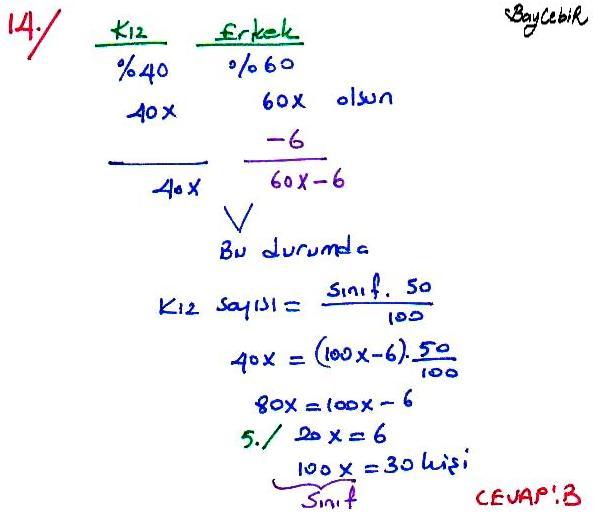 14./
BayCebiR
Kız Erkek
%40 %60
40x 60x olsun
-6
40x 60x-6
Bu durumda
Kız sayısı = sınıf. 50 / 100
40x = (100x-6). 50 / 100
80x = 100x - 6
5./ 20x = 6
100x = 30 kişi
Sınıf
CEVAP: B